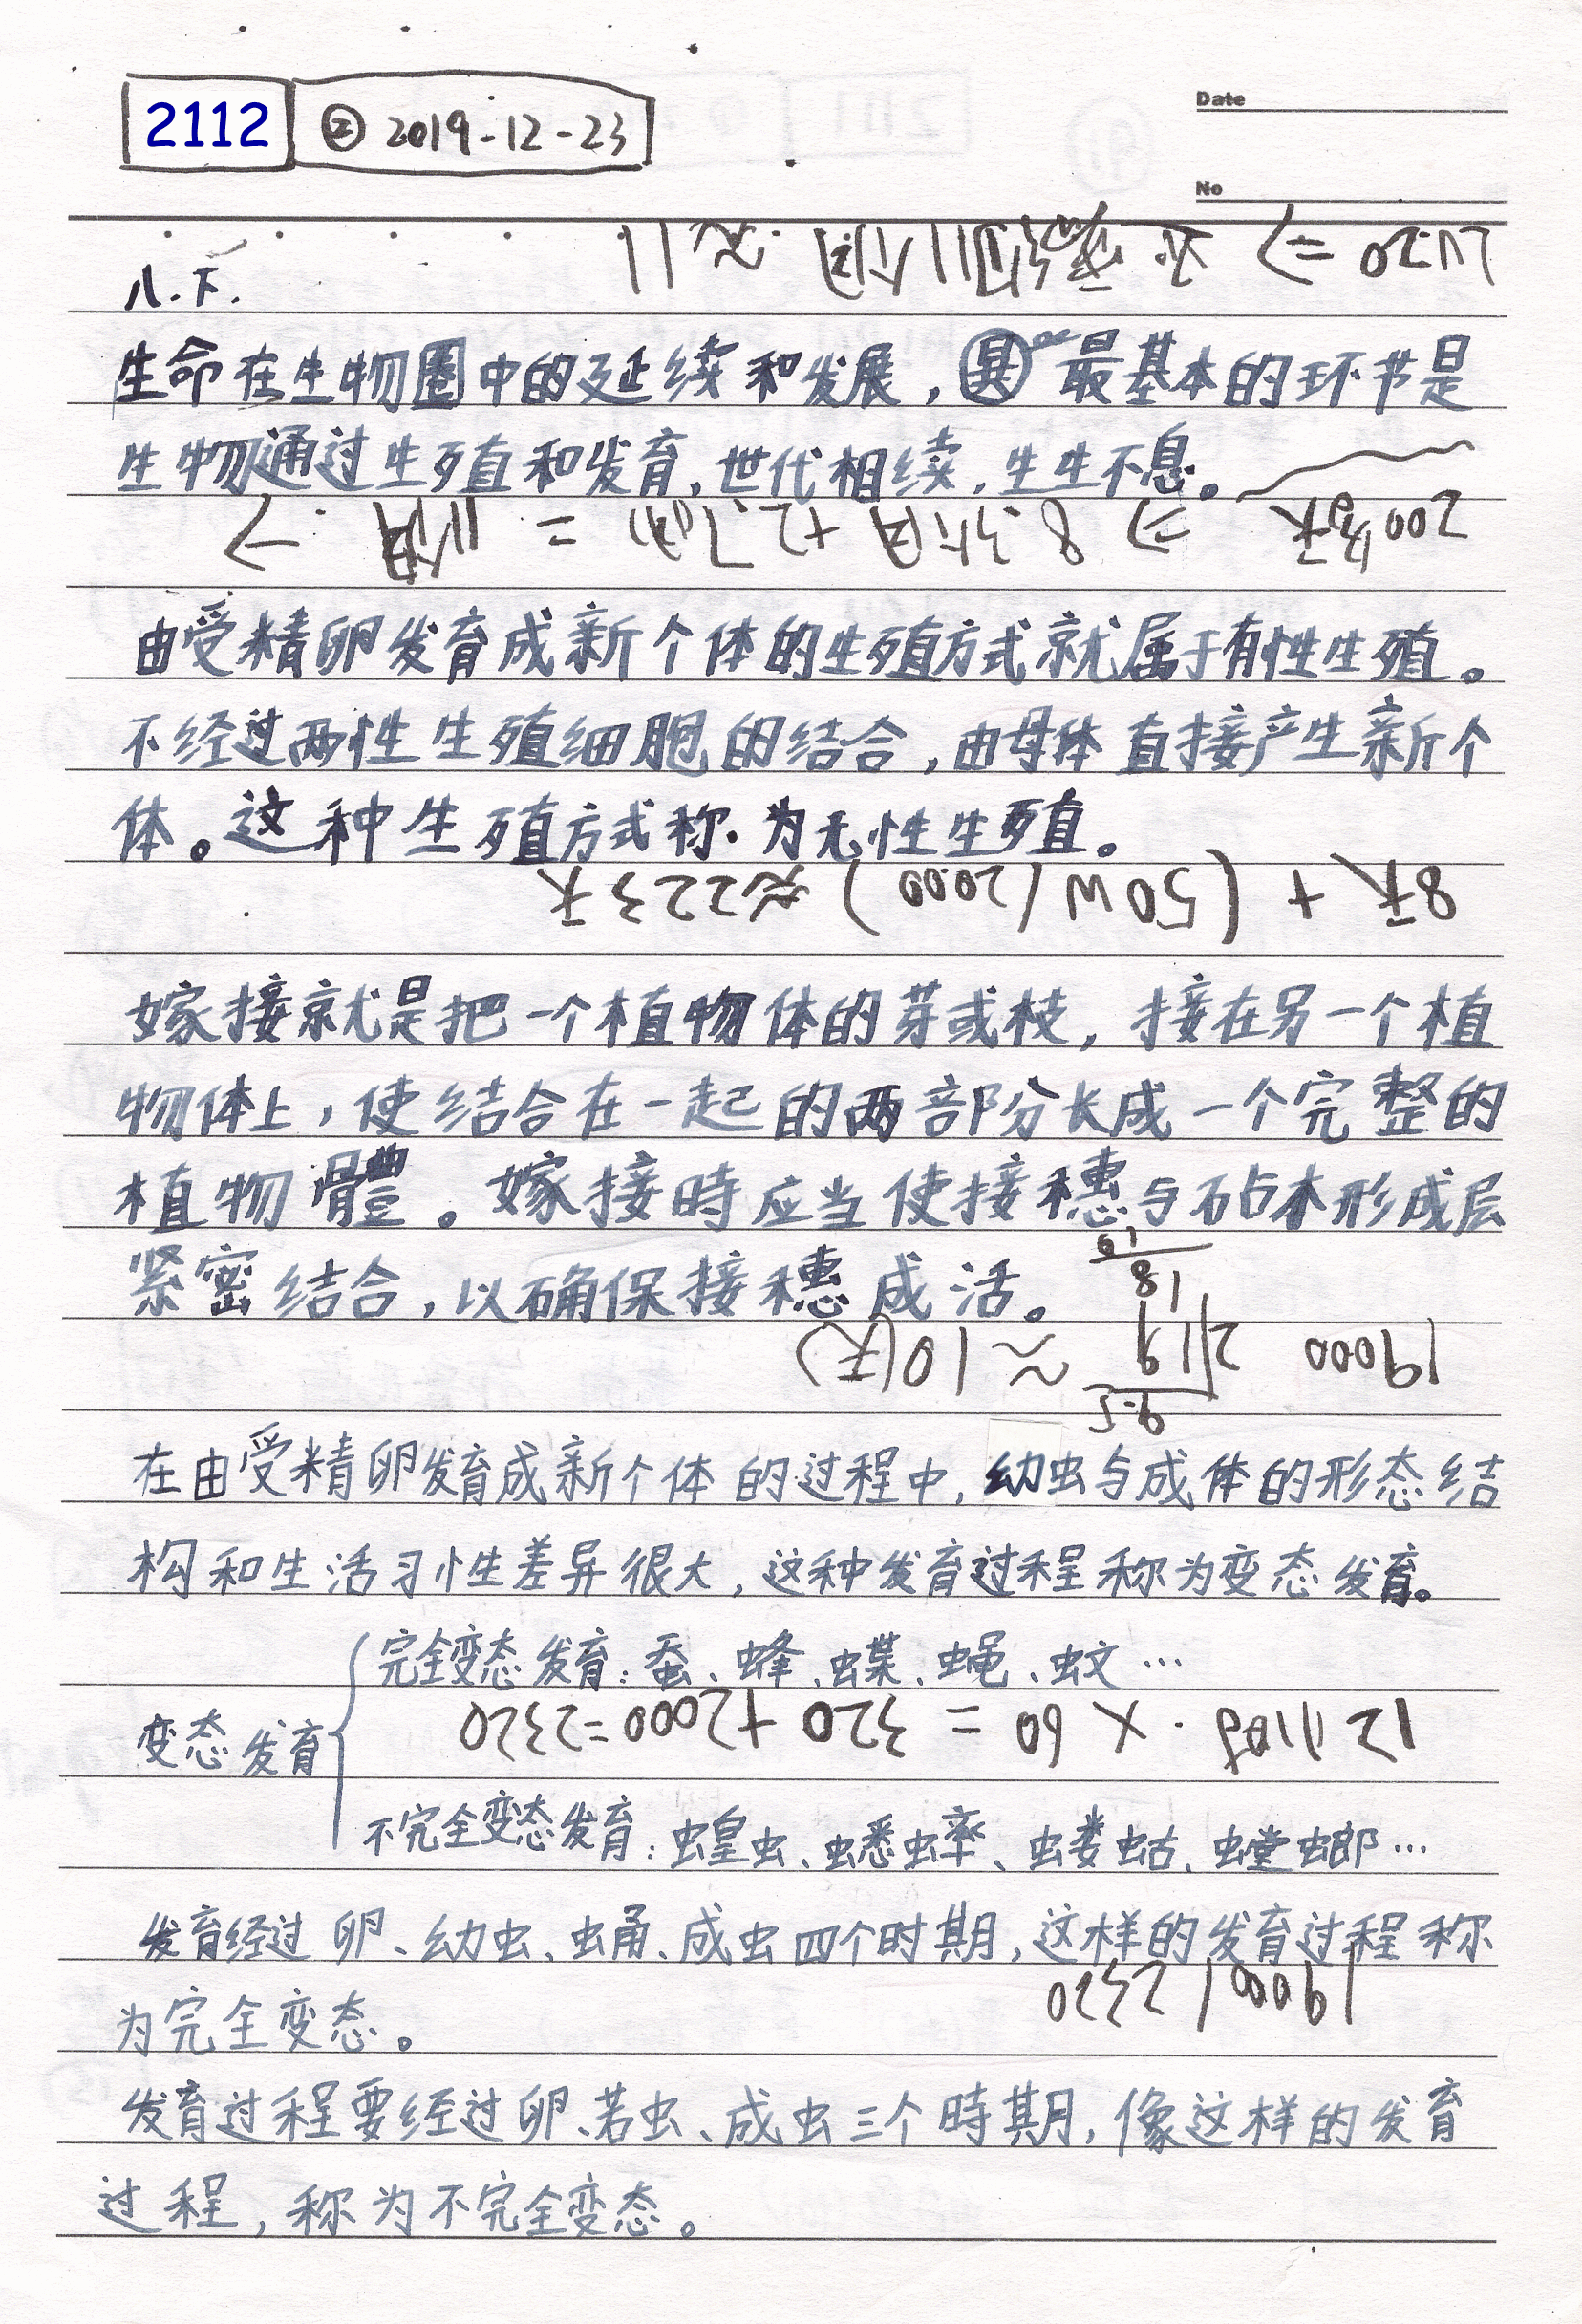 2112 ② 2019-12-23
Date
No
八.下.
生命在生物圈中的延续和发展，其最基本的环节是
生物通过生殖和发育，世代相续，生生不息。
由受精卵发育成新个体的生殖方式就属于有性生殖。
不经过两性生殖细胞的结合，由母体直接产生新个
体。这种生殖方式称为无性生殖。
8天 + (50W/2000) ≈223天
嫁接就是把一个植物体的芽或枝，接在另一个植
物体上，使结合在一起的两部分长成一个完整的
植物體。嫁接時应当使接穗与砧木形成层
紧密结合，以确保接穗成活。
19000 ≈10(天)
在由受精卵发育成新个体的过程中，幼虫与成体的形态结
构和生活习性差异很大，这种发育过程称为变态发育。
完全变态发育：蚕、蜂、蝶、蝇、蚊…
变态发育
× 60 = 320 +2000=2320
不完全变态发育：蝗虫、蟋蟀、蝼蛄、螳螂…
发育经过卵、幼虫、蛹、成虫四个时期，这样的发育过程称
19000/2320
为完全变态。
发育过程要经过卵、若虫、成虫三个時期，像这样的发育
过程，称为不完全变态。